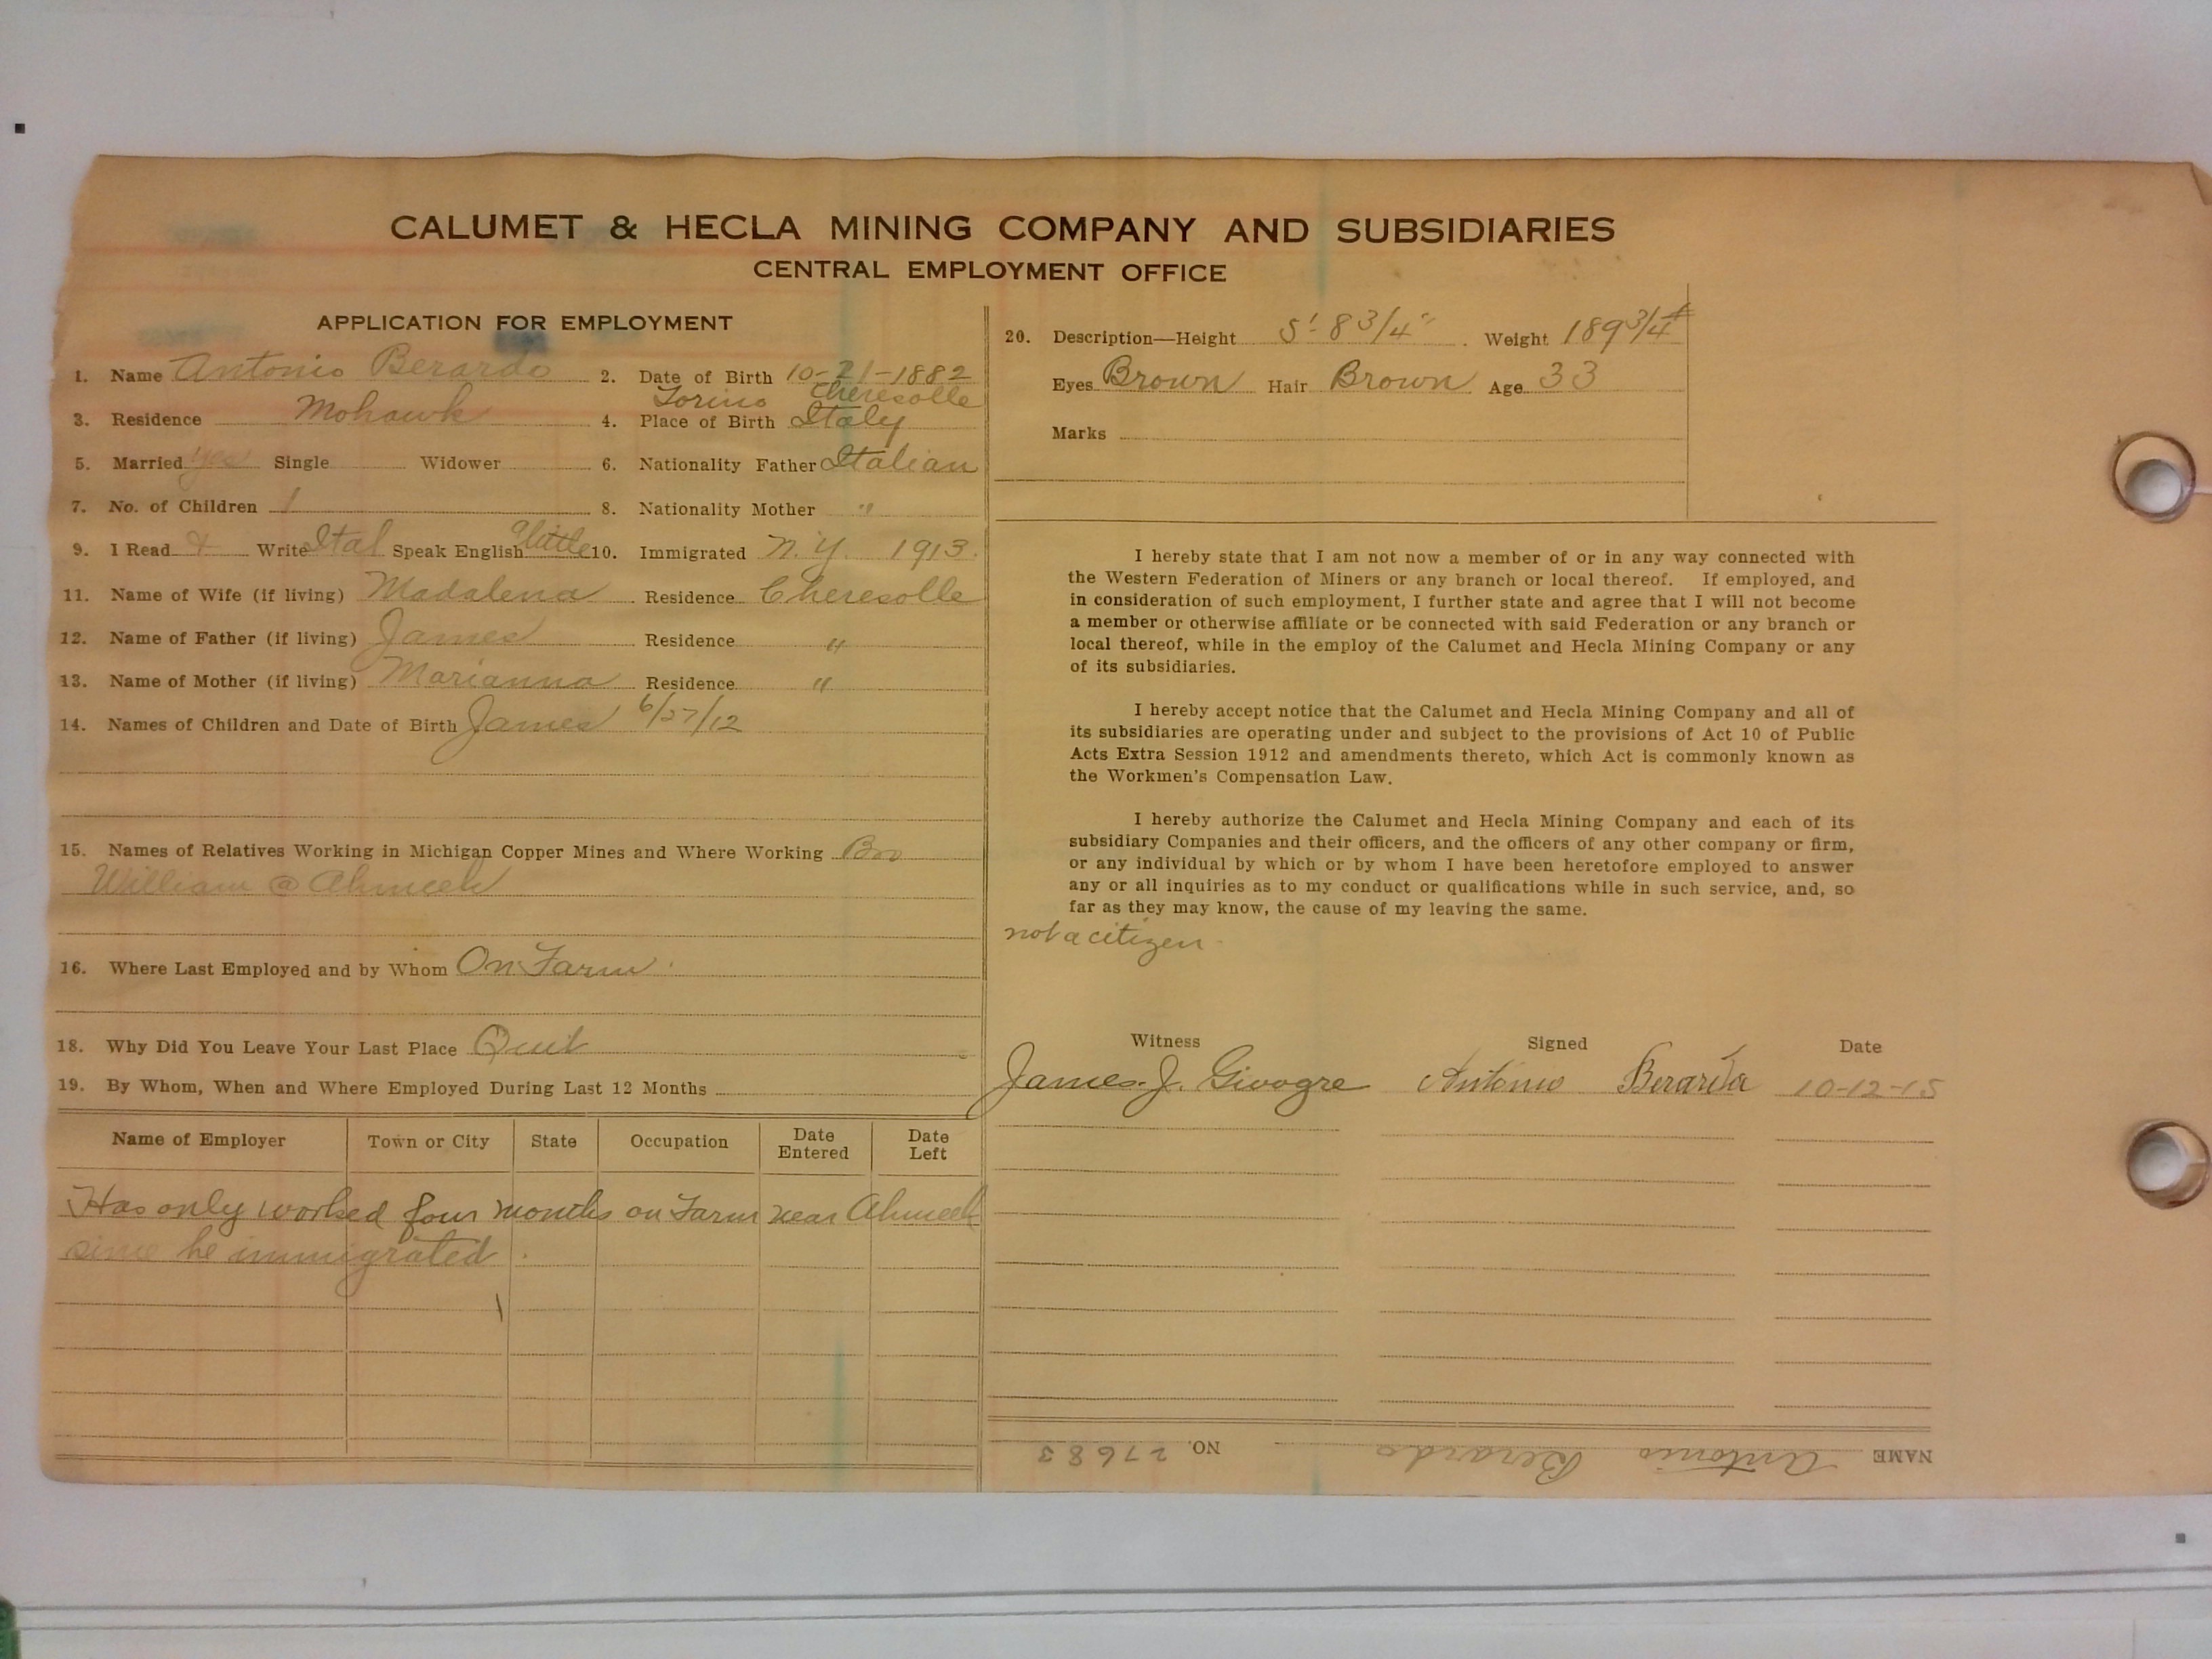 CALUMET & HECLA MINING COMPANY AND SUBSIDIARIES
CENTRAL EMPLOYMENT OFFICE
APPLICATION FOR EMPLOYMENT
1. Name Antonio Berardo 2. Date of Birth 10-21-1882
Torino Cheresolle
3. Residence Mohawk 4. Place of Birth Italy
5. Married yes Single Widower 6. Nationality Father Italian
7. No. of Children 1 8. Nationality Mother "
9. I Read & Write Ital Speak English a little 10. Immigrated N.Y. 1913.
11. Name of Wife (if living) Madalena Residence Cheresolle
12. Name of Father (if living) James Residence "
13. Name of Mother (if living) Marianna Residence "
14. Names of Children and Date of Birth James 6/27/12
15. Names of Relatives Working in Michigan Copper Mines and Where Working Bro
William @ Ahmeek
16. Where Last Employed and by Whom On Farm
18. Why Did You Leave Your Last Place Quit
19. By Whom, When and Where Employed During Last 12 Months
Name of Employer Town or City State Occupation Date Entered Date Left
Has only worked four months on Farm near Ahmeek
since he immigrated
20. Description—Height 5' 8 3/4" Weight 189 3/4 #
Eyes Brown Hair Brown Age 33
Marks
I hereby state that I am not now a member of or in any way connected with
the Western Federation of Miners or any branch or local thereof. If employed, and
in consideration of such employment, I further state and agree that I will not become
a member or otherwise affiliate or be connected with said Federation or any branch or
local thereof, while in the employ of the Calumet and Hecla Mining Company or any
of its subsidiaries.
I hereby accept notice that the Calumet and Hecla Mining Company and all of
its subsidiaries are operating under and subject to the provisions of Act 10 of Public
Acts Extra Session 1912 and amendments thereto, which Act is commonly known as
the Workmen's Compensation Law.
I hereby authorize the Calumet and Hecla Mining Company and each of its
subsidiary Companies and their officers, and the officers of any other company or firm,
or any individual by which or by whom I have been heretofore employed to answer
any or all inquiries as to my conduct or qualifications while in such service, and, so
far as they may know, the cause of my leaving the same.
not a citizen
Witness Signed Date
James J. Antonio Berarda 10-12-15
NAME Antonio Berardo NO. 27683